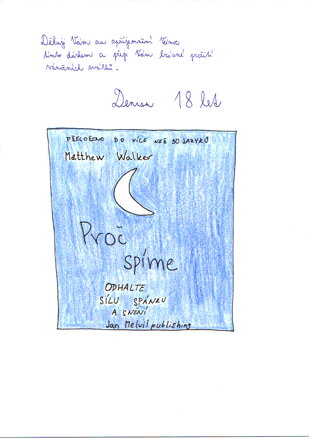 Děkuji Vám za zpříjemnění Vánoc
tímto dárkem a přeji Vám krásné prožití
vánočních svátků.
Denisa 18 let
PŘELOŽENO DO VÍCE NEŽ 30 JAZYKŮ
Matthew Walker
Proč
spíme
ODHALTE
SÍLU SPÁNKU
A SNĚNÍ
Jan Melvil publishing